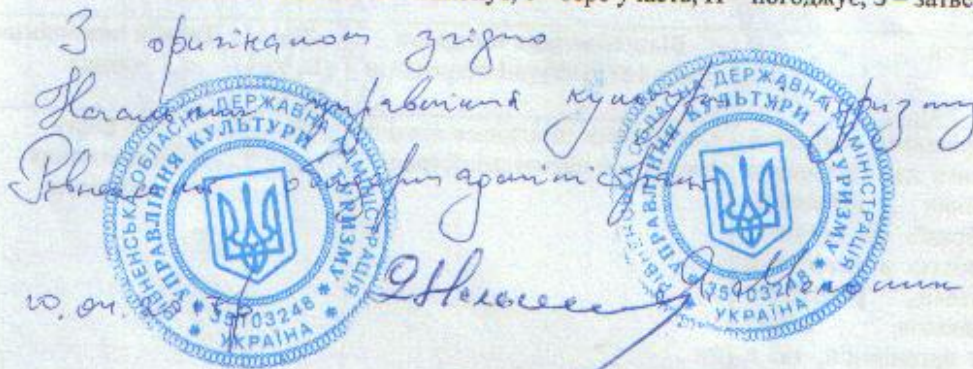 бере участь, П – погоджує, З – затв
З оригіналом згідно
Начальник управління культури і туризму
Рівненської облдержадміністрації
РІВНЕНСЬКА ОБЛАСНА ДЕРЖАВНА АДМІНІСТРАЦІЯ
УПРАВЛІННЯ КУЛЬТУРИ І ТУРИЗМУ
* 35103248 *
УКРАЇНА
РІВНЕНСЬКА ОБЛАСНА ДЕРЖАВНА АДМІНІСТРАЦІЯ
УПРАВЛІННЯ КУЛЬТУРИ І ТУРИЗМУ
* 35103248 *
УКРАЇНА